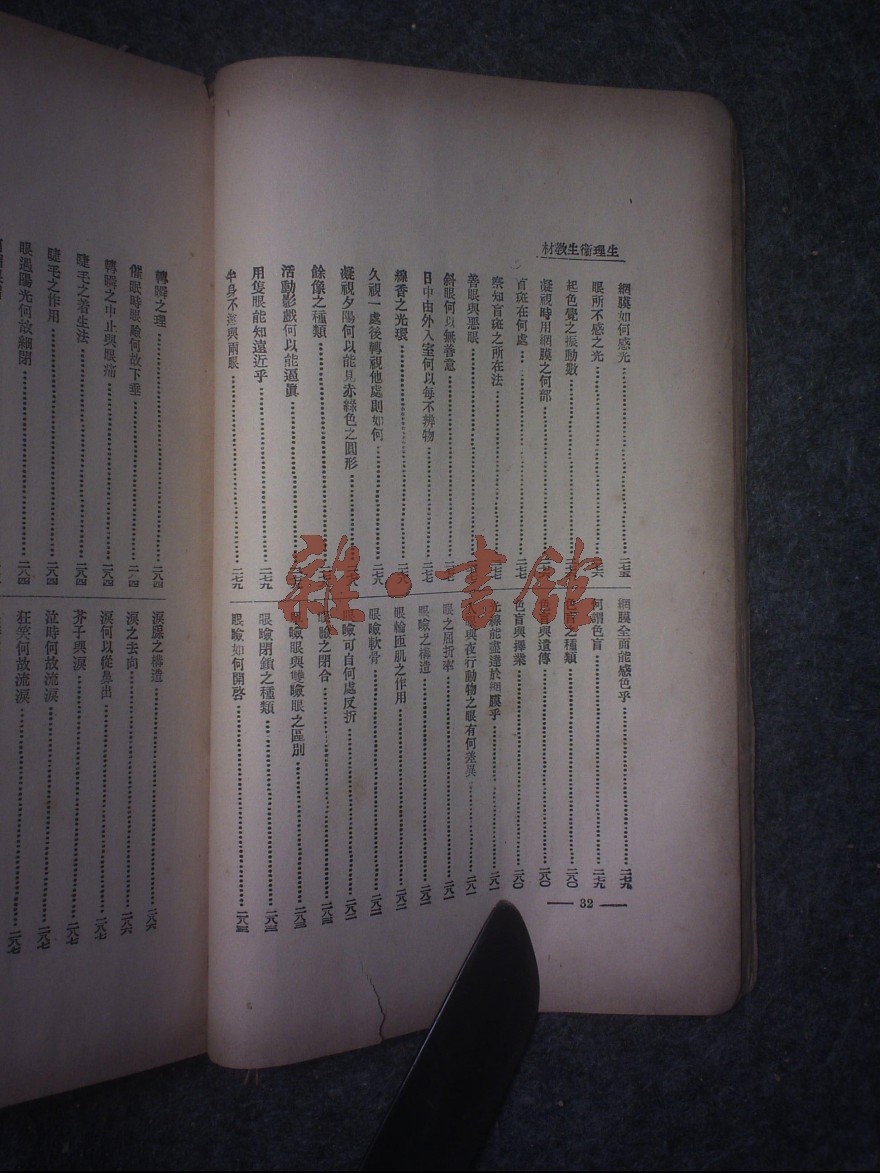 生理衞生教材
網膜如何感光……二七五
眼所不感之光……二七六
起色覺之振動數
凝視時用網膜之何部
盲斑在何處……二七七
察知盲斑之所在法
善眼與惡眼
斜眼何以無善意
日中由外入室何以每不辨物……二七七
線香之光環
久視一處後轉視他處則如何……二七八
凝視夕陽何以能見赤綠色之圓形
餘像之種類
活動影戲何以能逼眞
用隻眼能知遠近乎……二七九
牟身不渣與兩眼……二七九
網膜全面能感色乎……二七九
何謂色盲……二七九
色盲之種類……二八〇
色盲與遺傳……二八〇
色盲與擇業……二八〇
光線能盡達於網膜乎……二八一
與夜行動物之眼有何差異……二八一
眼之屈折率……二八一
眼瞼之構造……二八二
眼輪匝肌之作用……二八二
眼瞼軟骨……二八二
眼瞼可自何處反折……二八二
眼瞼之閉合……二八三
眼瞼眼與雙瞼眼之區別……二八三
眼瞼閉鎖之種類……二八三
眼瞼如何開啓……二八三
32
轉瞬之理……二八四
催眠時眼瞼何故下垂……二八四
轉瞬之中止與眼痛……二八四
睫毛之着生法……二八四
睫毛之作用……二八四
眼遇陽光何故細閉……二八四
淚腺之構造……二八六
淚之去向……二八六
淚何以從鼻出……二八七
芥子與淚……二八七
泣時何故流淚……二八七
狂笑何故流淚……二八七
雜·書館